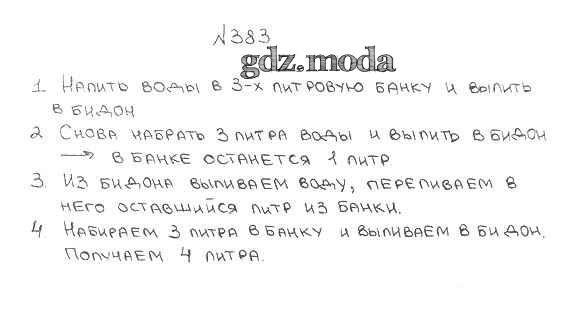 №383
gdz.moda
1. Налить воды в 3-х литровую банку и вылить
в бидон
2 Снова набрать 3 литра воды и вылить в бидон
→ в банке останется 1 литр
3. Из бидона выливаем воду, переливаем в
него оставшийся литр из банки.
4 Набираем 3 литра в банку и выливаем в бидон.
Получаем 4 литра.